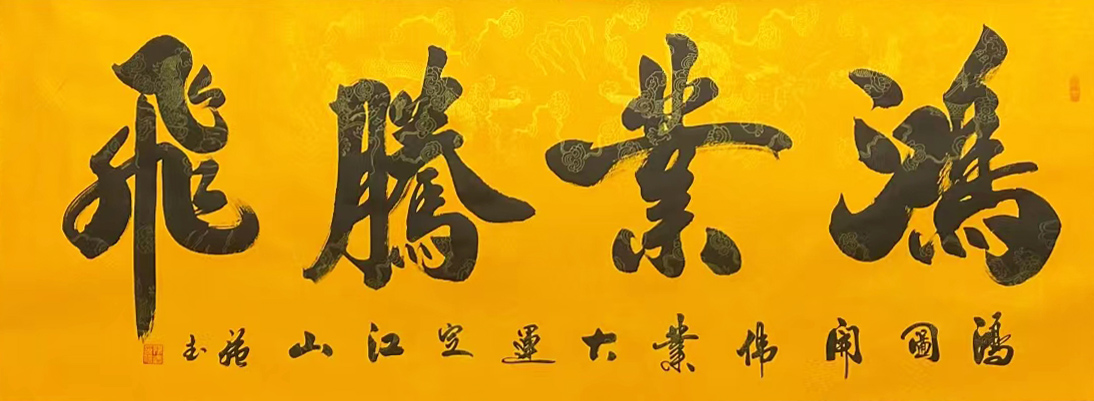 鴻業騰飛
鴻圖開偉業大運定江山